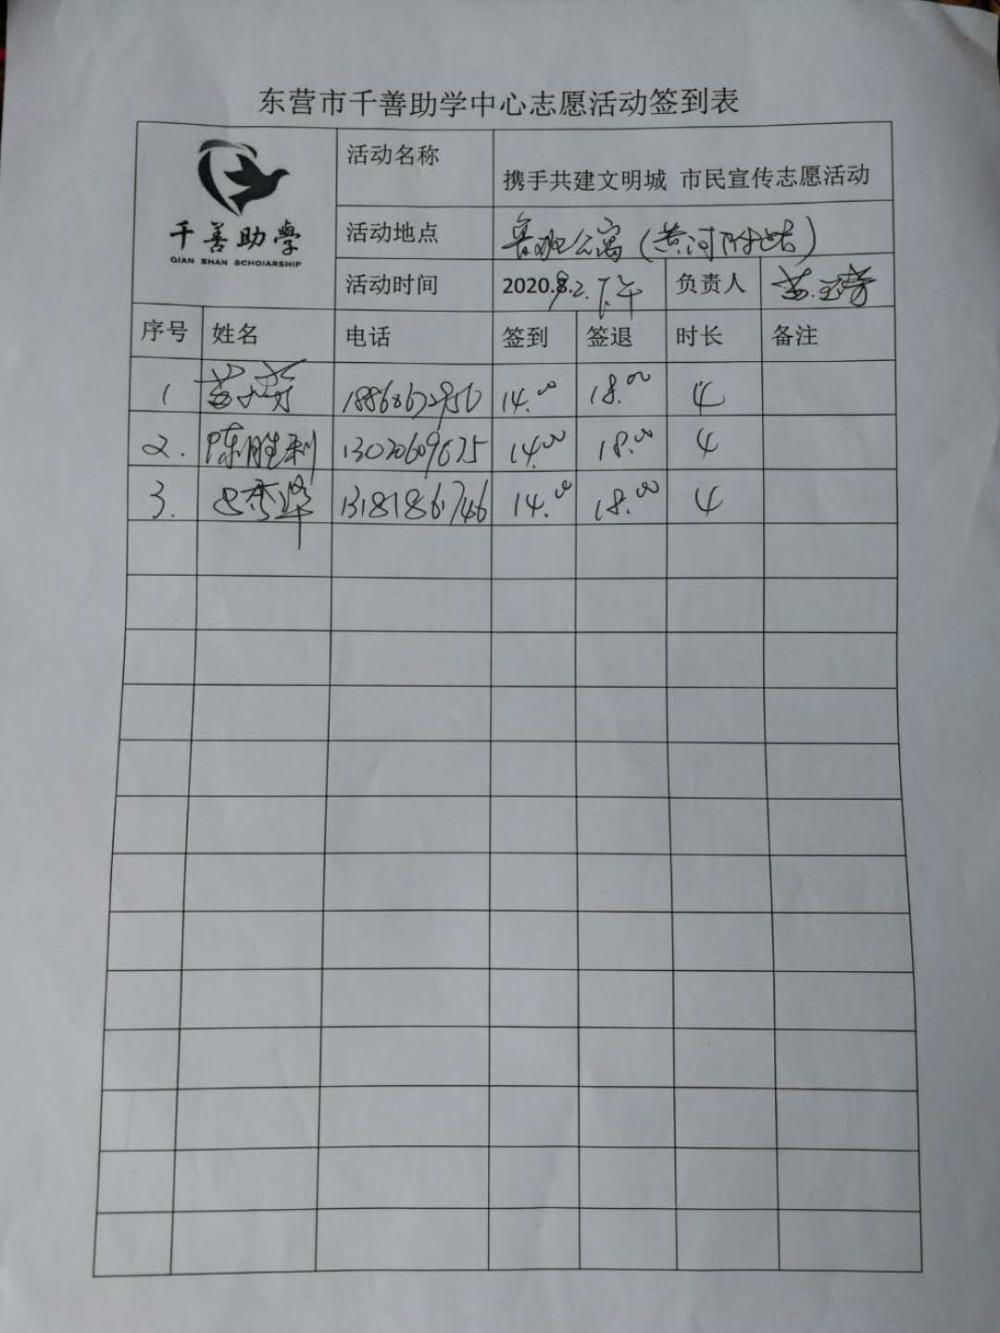 东营市千善助学中心志愿活动签到表
千善助學
QIAN SHAN SCHOIARSHIP
活动名称 携手共建文明城 市民宣传志愿活动
活动地点 鲁班公寓(黄河附站)
活动时间 2020.9.2.下午 负责人
序号 姓名 电话 签到 签退 时长 备注
1 14.00 18.00 4
2. 陈胜利 13020609675 14.00 18.00 4
3. 13181861746 14.00 18.00 4